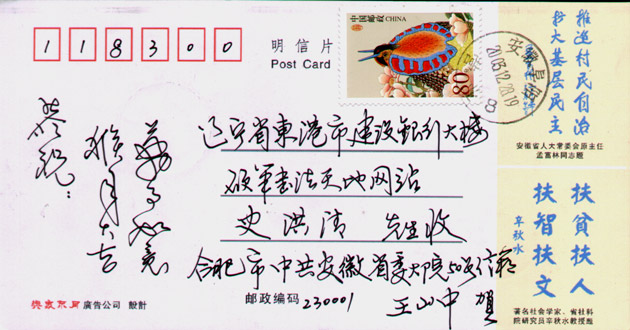 118300
明信片
Post Card
中国邮政 CHINA
80
安徽
2003.12.28.19
8
恭祝:
猴年大吉
万事如意
辽宁省東港市建设銀行大楼
硬筆書法天地网站
史洪清 先生收
合肥市中共安徽省委大院505信箱
王山中 賀
邮政编码 230001
廣告公司 設計
推進村民自治
扩大基层民主
安徽省人大常委会原主任
孟富林同志题
扶貧扶人
扶智扶文
辛秋水
著名社会学家、省社科
院研究员辛秋水教授题